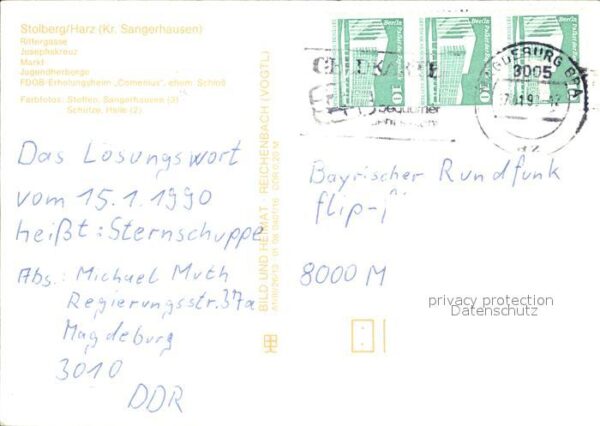 Stolberg/Harz (Kr. Sangerhausen)
Rittergasse
Josephskreuz
Markt
Jugendherberge
FDGB-Erholungsheim „Comenius", ehem. Schloß
Farbfotos: Steffen, Sangerhausen (3)
Schütze, Halle (2)
Das Losungswort
vom 15.1.1990
heißt: Sternschuppe
Abs.: Michael Muth
Regierungsstr. 37a
Magdeburg
3010
DDR
BILD UND HEIMAT · REICHENBACH (VOGTL)
DDR 0,20 M
Berlin Palast der Republik
10
Berlin Palast der Republik
10
MAGDEBURG BPA
3005
Bayrischer Rundfunk
flip-
8000 M
privacy protection
Datenschutz